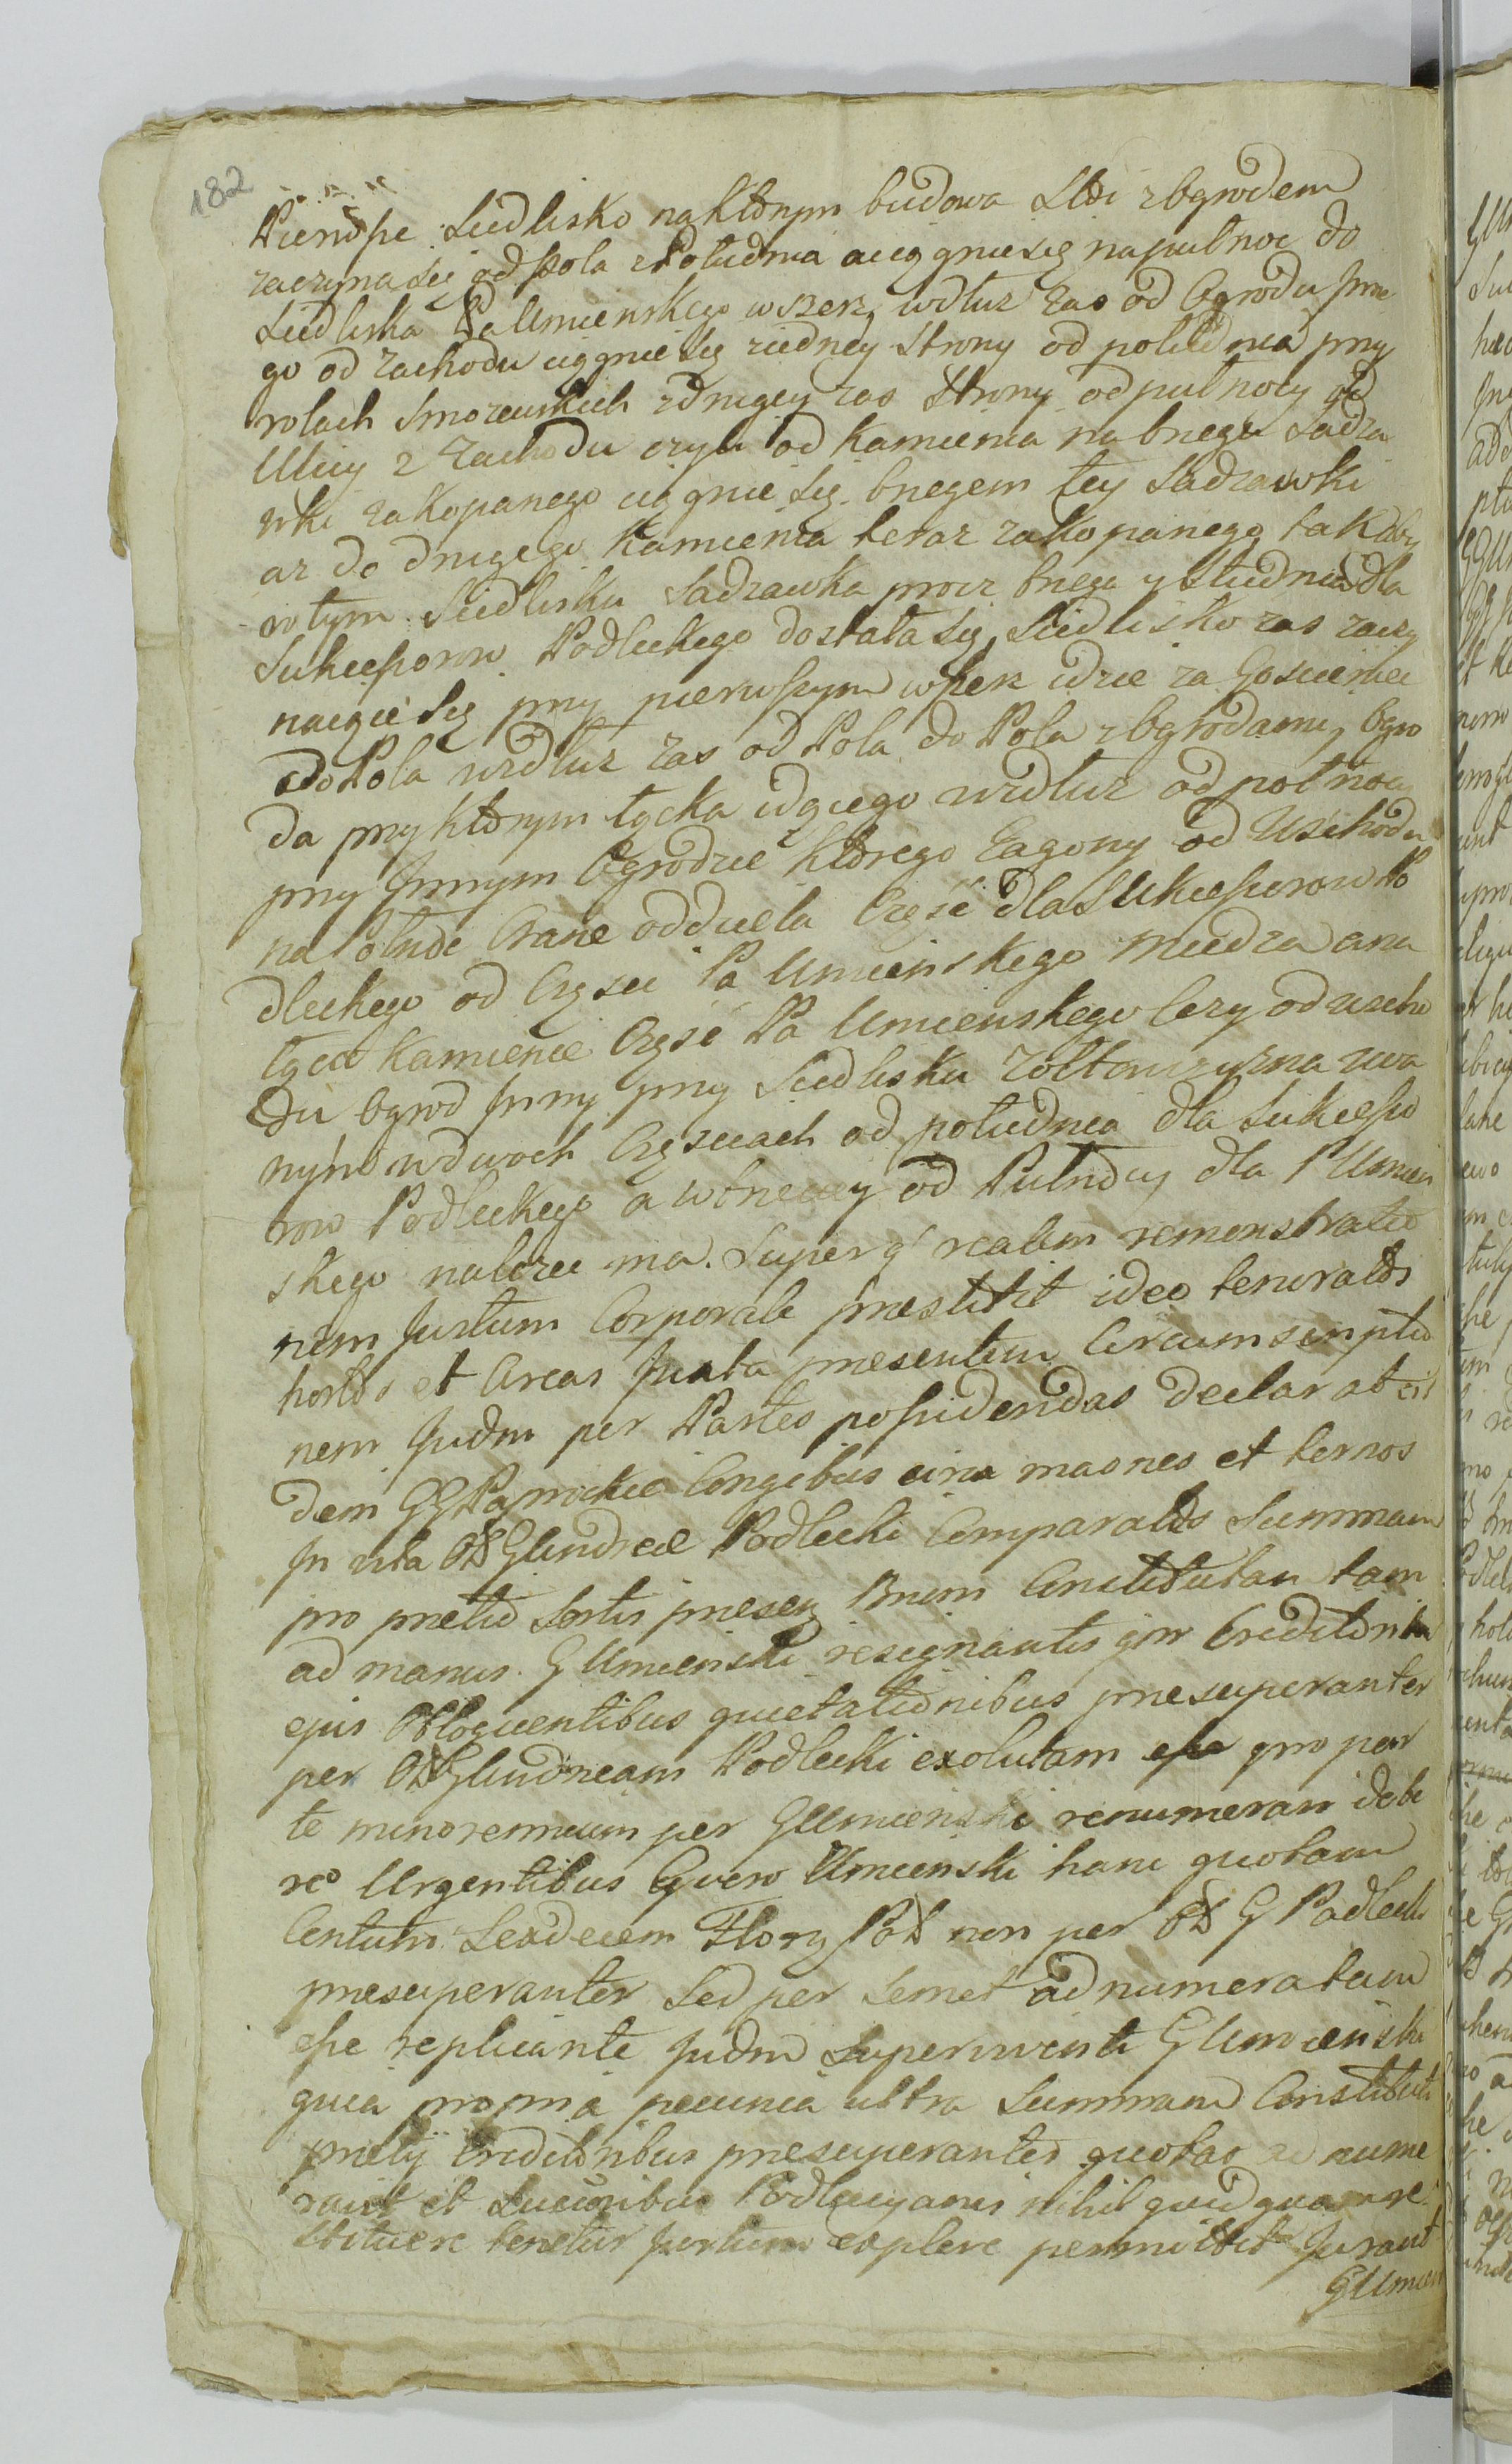 182
Pierwsze Siedlisko naktorym budowa stoi zogrodem
zaczyna się od Pola z Południa aciągnie się napułnoc do
Siedliska Pa Umienskiego wszerz, wdłuz zas od Ogrodu
go od zachodu ciągnie się ziedney strony od południa przy
rolach Smozewskich zdrugiey zas strony od pułnocy od
Ulicy z Zachodu czyli od kamienia nabrzegu Sadza
wki zakopanego ciągnie się brzegem tey Sadzawki
az do drugiego kamienia teraz zakopanego tak aby
wtym Siedlisku Sadzawka procz brzegu y studnia dla
Sukcessorow Podleckiego dostała się, Siedlisko zas zaczy
naiące się przy pierwszym wszerz idzie za Gosciniec
do Pola wzdłuz zas od Pola do Pola zogrodami, Ogro
da przyktorym łącka idącego wzdłuz od połnocy
przy Innym Ogrodzie ktorego Zagony od Wschodu
na Połudn Orane oddziela Częśc dla Sukcessorow Po
dleckiego od Części Pa Umienskiego Miedza ana
tyca Kamienie Część Pa Umienskiego lezy od wscho
du Ogrod Inny przy Siedlisku Zołtowizna zwa
nym wdwoch Częsciach od południa dla Sukcesso
row Podleckiego a wtrzeciey od Pułnocy dla P Umien
skiego nalezec ma. Super q realem remonstratio
nem Jurtum Corporale praestitit ideo tenoratos
hortos et Areas Juxta praesentem Circumscriptio
nem Judm per Partes possidendas declarat
dem GG Paprockie Congibus circa maones et ternos
In vita Glndreae Podlecki Comparatos Summam
pro pretio Sortis praesen Bnem Constitutam tam
ad manus G Umienski resignantis qm Creditorib
ejus Obloquentibus quietationibus praesuperanter
per Glndream Podlecki exolutam esse pro par
te minorennium per GUmienski renumerari debe
re Urgentibus G vero Umienski hanc quotam
Centum Sexdecem Flory Pol non per G Podlecki
praesuperanter Sed per Semet adnumeratam
esse replicante Judm Superinventi G Umienski
quia propria pecunia ultra Summam Constituti
prety Creditoribus praesuperantes quotas adnume
ravit et Succoribus Podlecyanis nihil quidquam re
stituere tenetur Jurtum explere permittit Jurant
GUmien